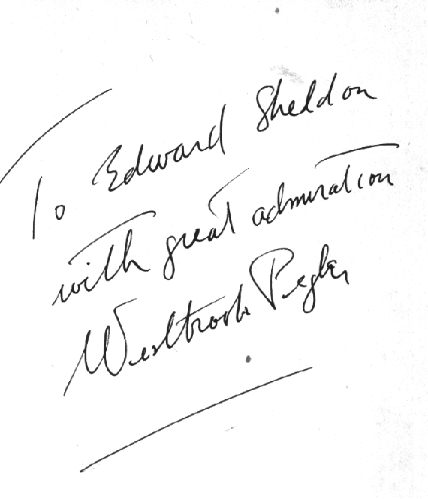 To Edward Sheldon
with great admiration
Westbrook Pegler